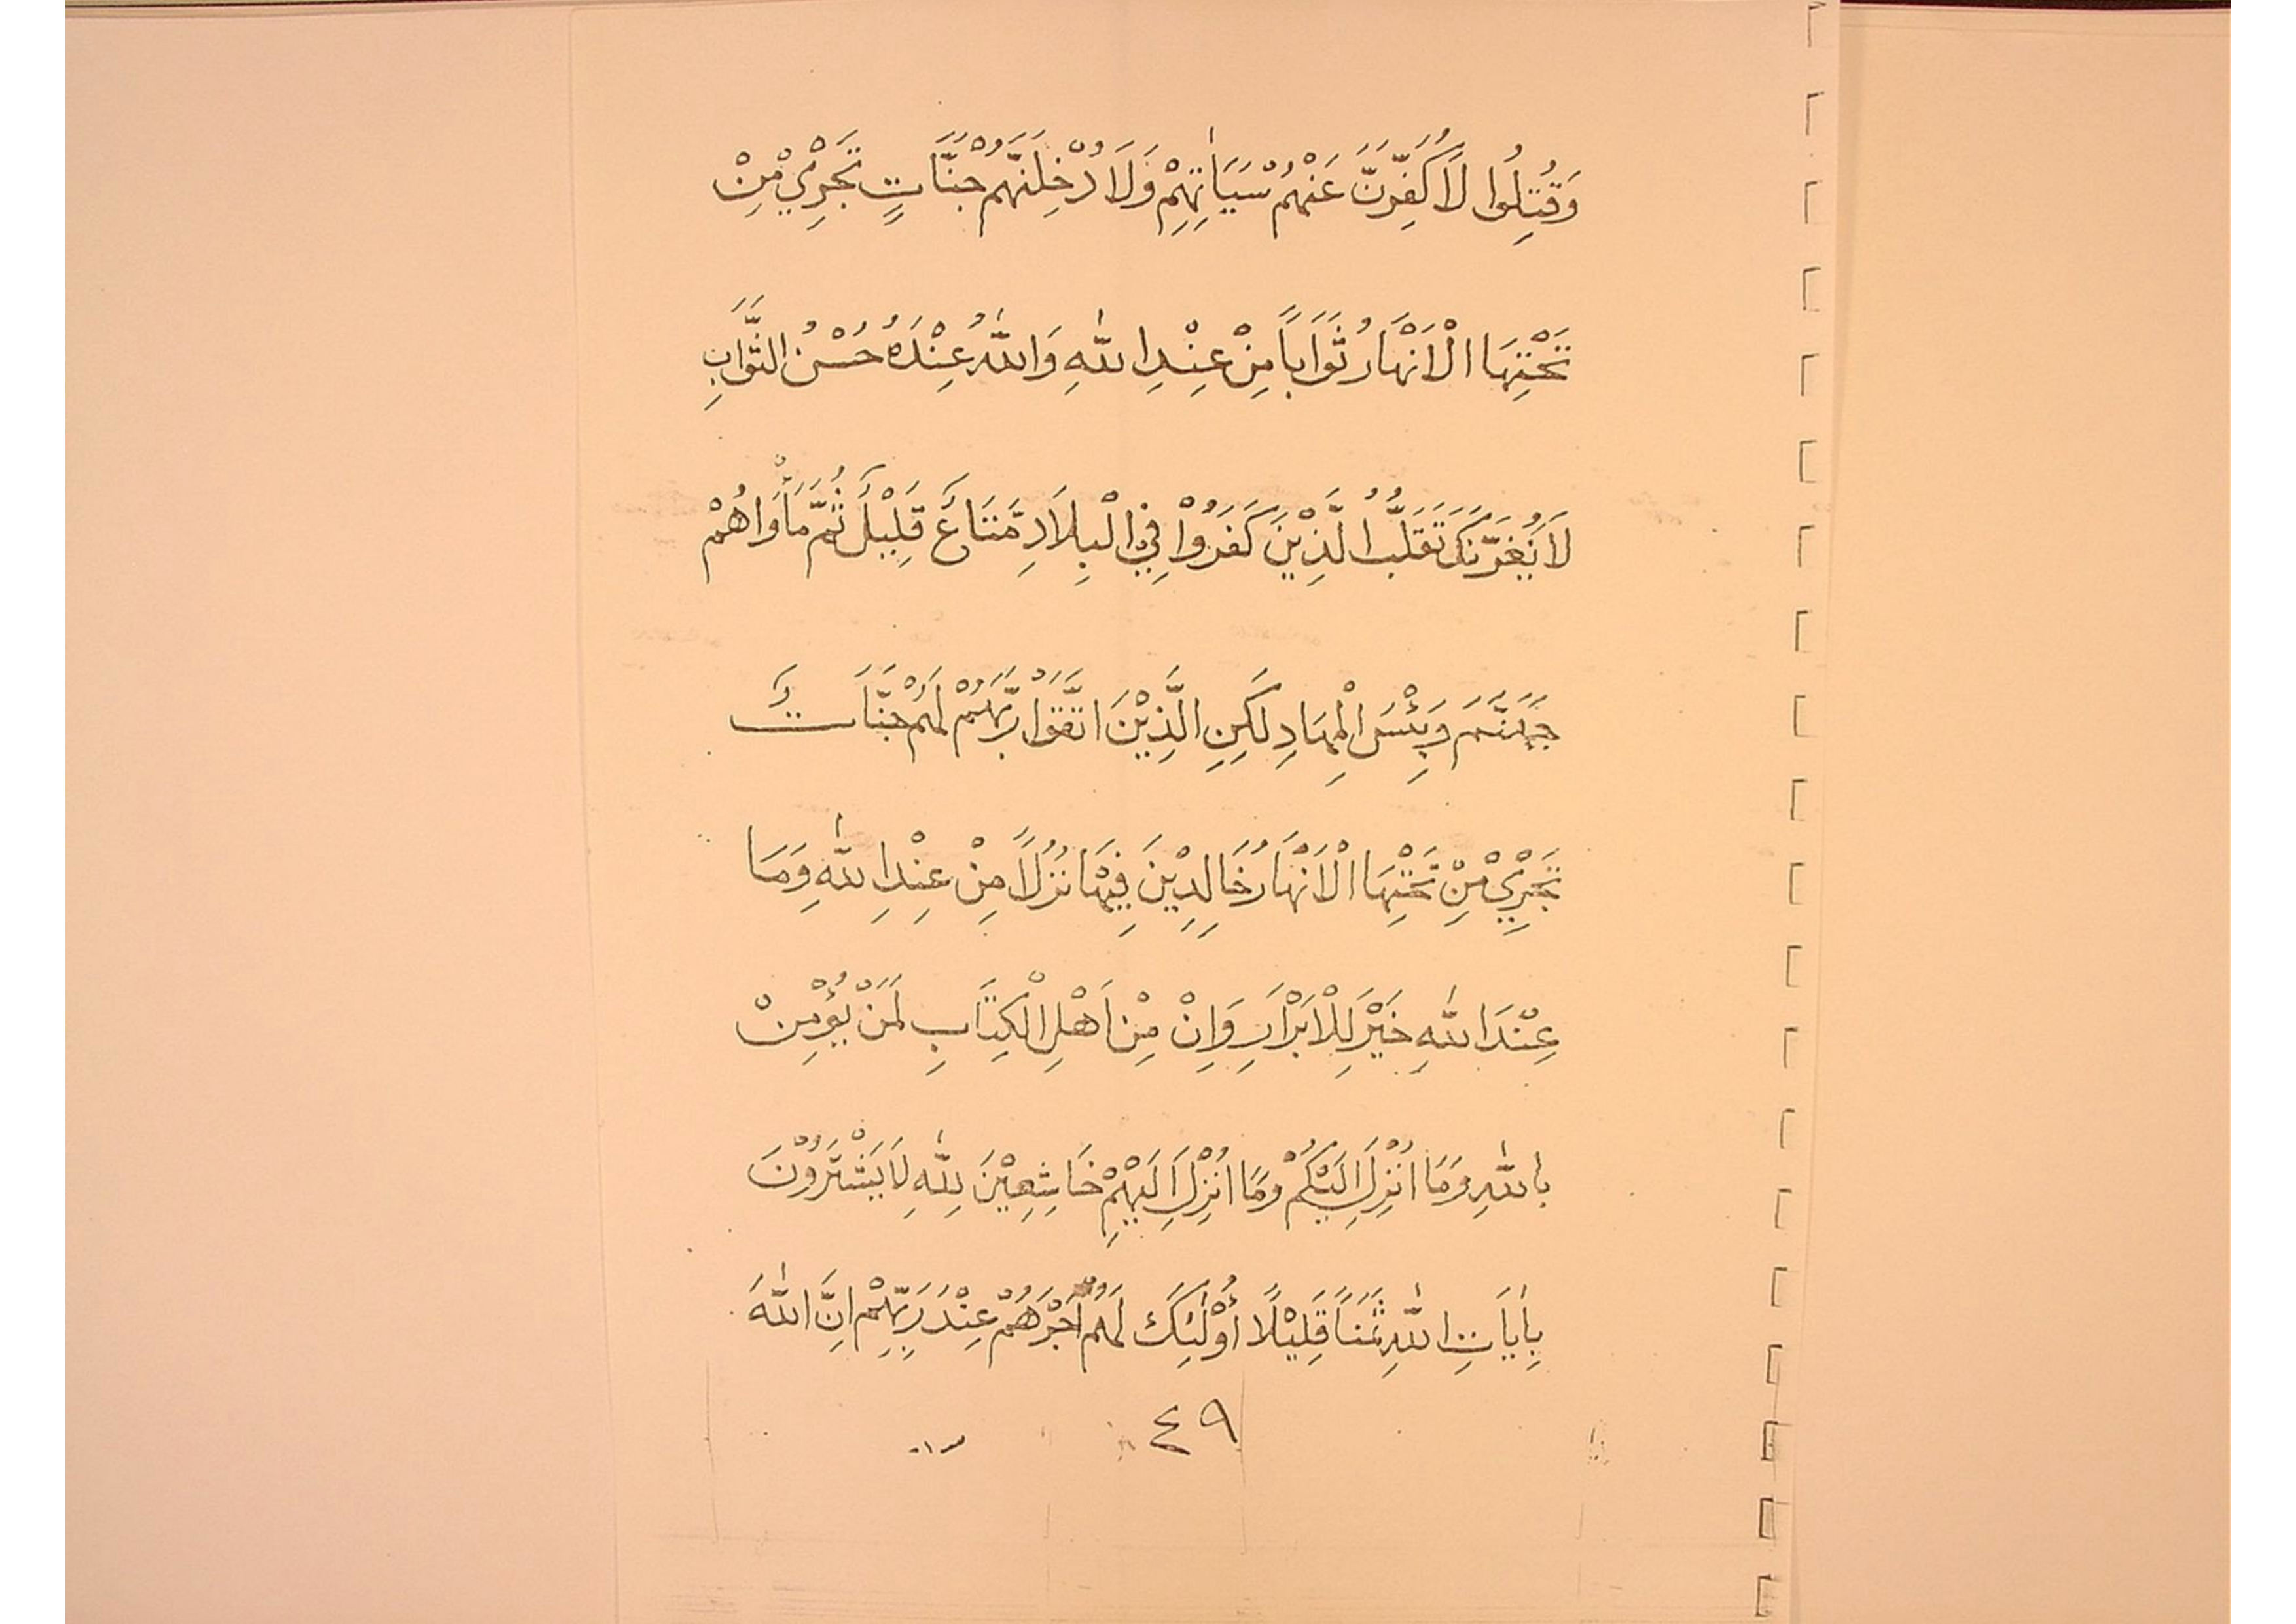 وَقُتِلُوا لَاُكَفِّرَنَّ عَنْهُمْ سَيَاٰتِهِمْ وَلَاُدْخِلَنَّهُمْ جَنَّاتٍ تَجْرِيْ مِنْ
تَحْتِهَا الْاَنْهَارُ ثَوَابًا مِنْ عِنْدِ اللّٰهِ وَاللّٰهُ عِنْدَهُ حُسْنُ الثَّوَابِ
لَا يَغُرَّنَّكَ تَقَلُّبُ الَّذِيْنَ كَفَرُوْا فِي الْبِلَادِ مَتَاعٌ قَلِيْلٌ ثُمَّ مَأْوَاهُمْ
جَهَنَّمَ وَبِئْسَ الْمِهَادِ لَكِنِ الَّذِيْنَ اتَّقَوْا رَبَّهُمْ لَهُمْ جَنَّاتٌ
تَجْرِيْ مِنْ تَحْتِهَا الْاَنْهَارُ خَالِدِيْنَ فِيْهَا نُزُلًا مِنْ عِنْدِ اللّٰهِ وَمَا
عِنْدَ اللّٰهِ خَيْرٌ لِلْاَبْرَارِ وَاِنْ مِنْ اَهْلِ الْكِتَابِ لَمَنْ يُؤْمِنْ
بِاللّٰهِ وَمَا اُنْزِلَ اِلَيْكُمْ وَمَا اُنْزِلَ اِلَيْهِمْ خَاشِعِيْنَ لِلّٰهِ لَا يَشْتَرُوْنَ
بِاٰيَاتِ اللّٰهِ ثَمَنًا قَلِيْلًا أُوْلٰئِكَ لَهُمْ اَجْرُهُمْ عِنْدَ رَبِّهِمْ اِنَّ اللّٰهَ
٤٩